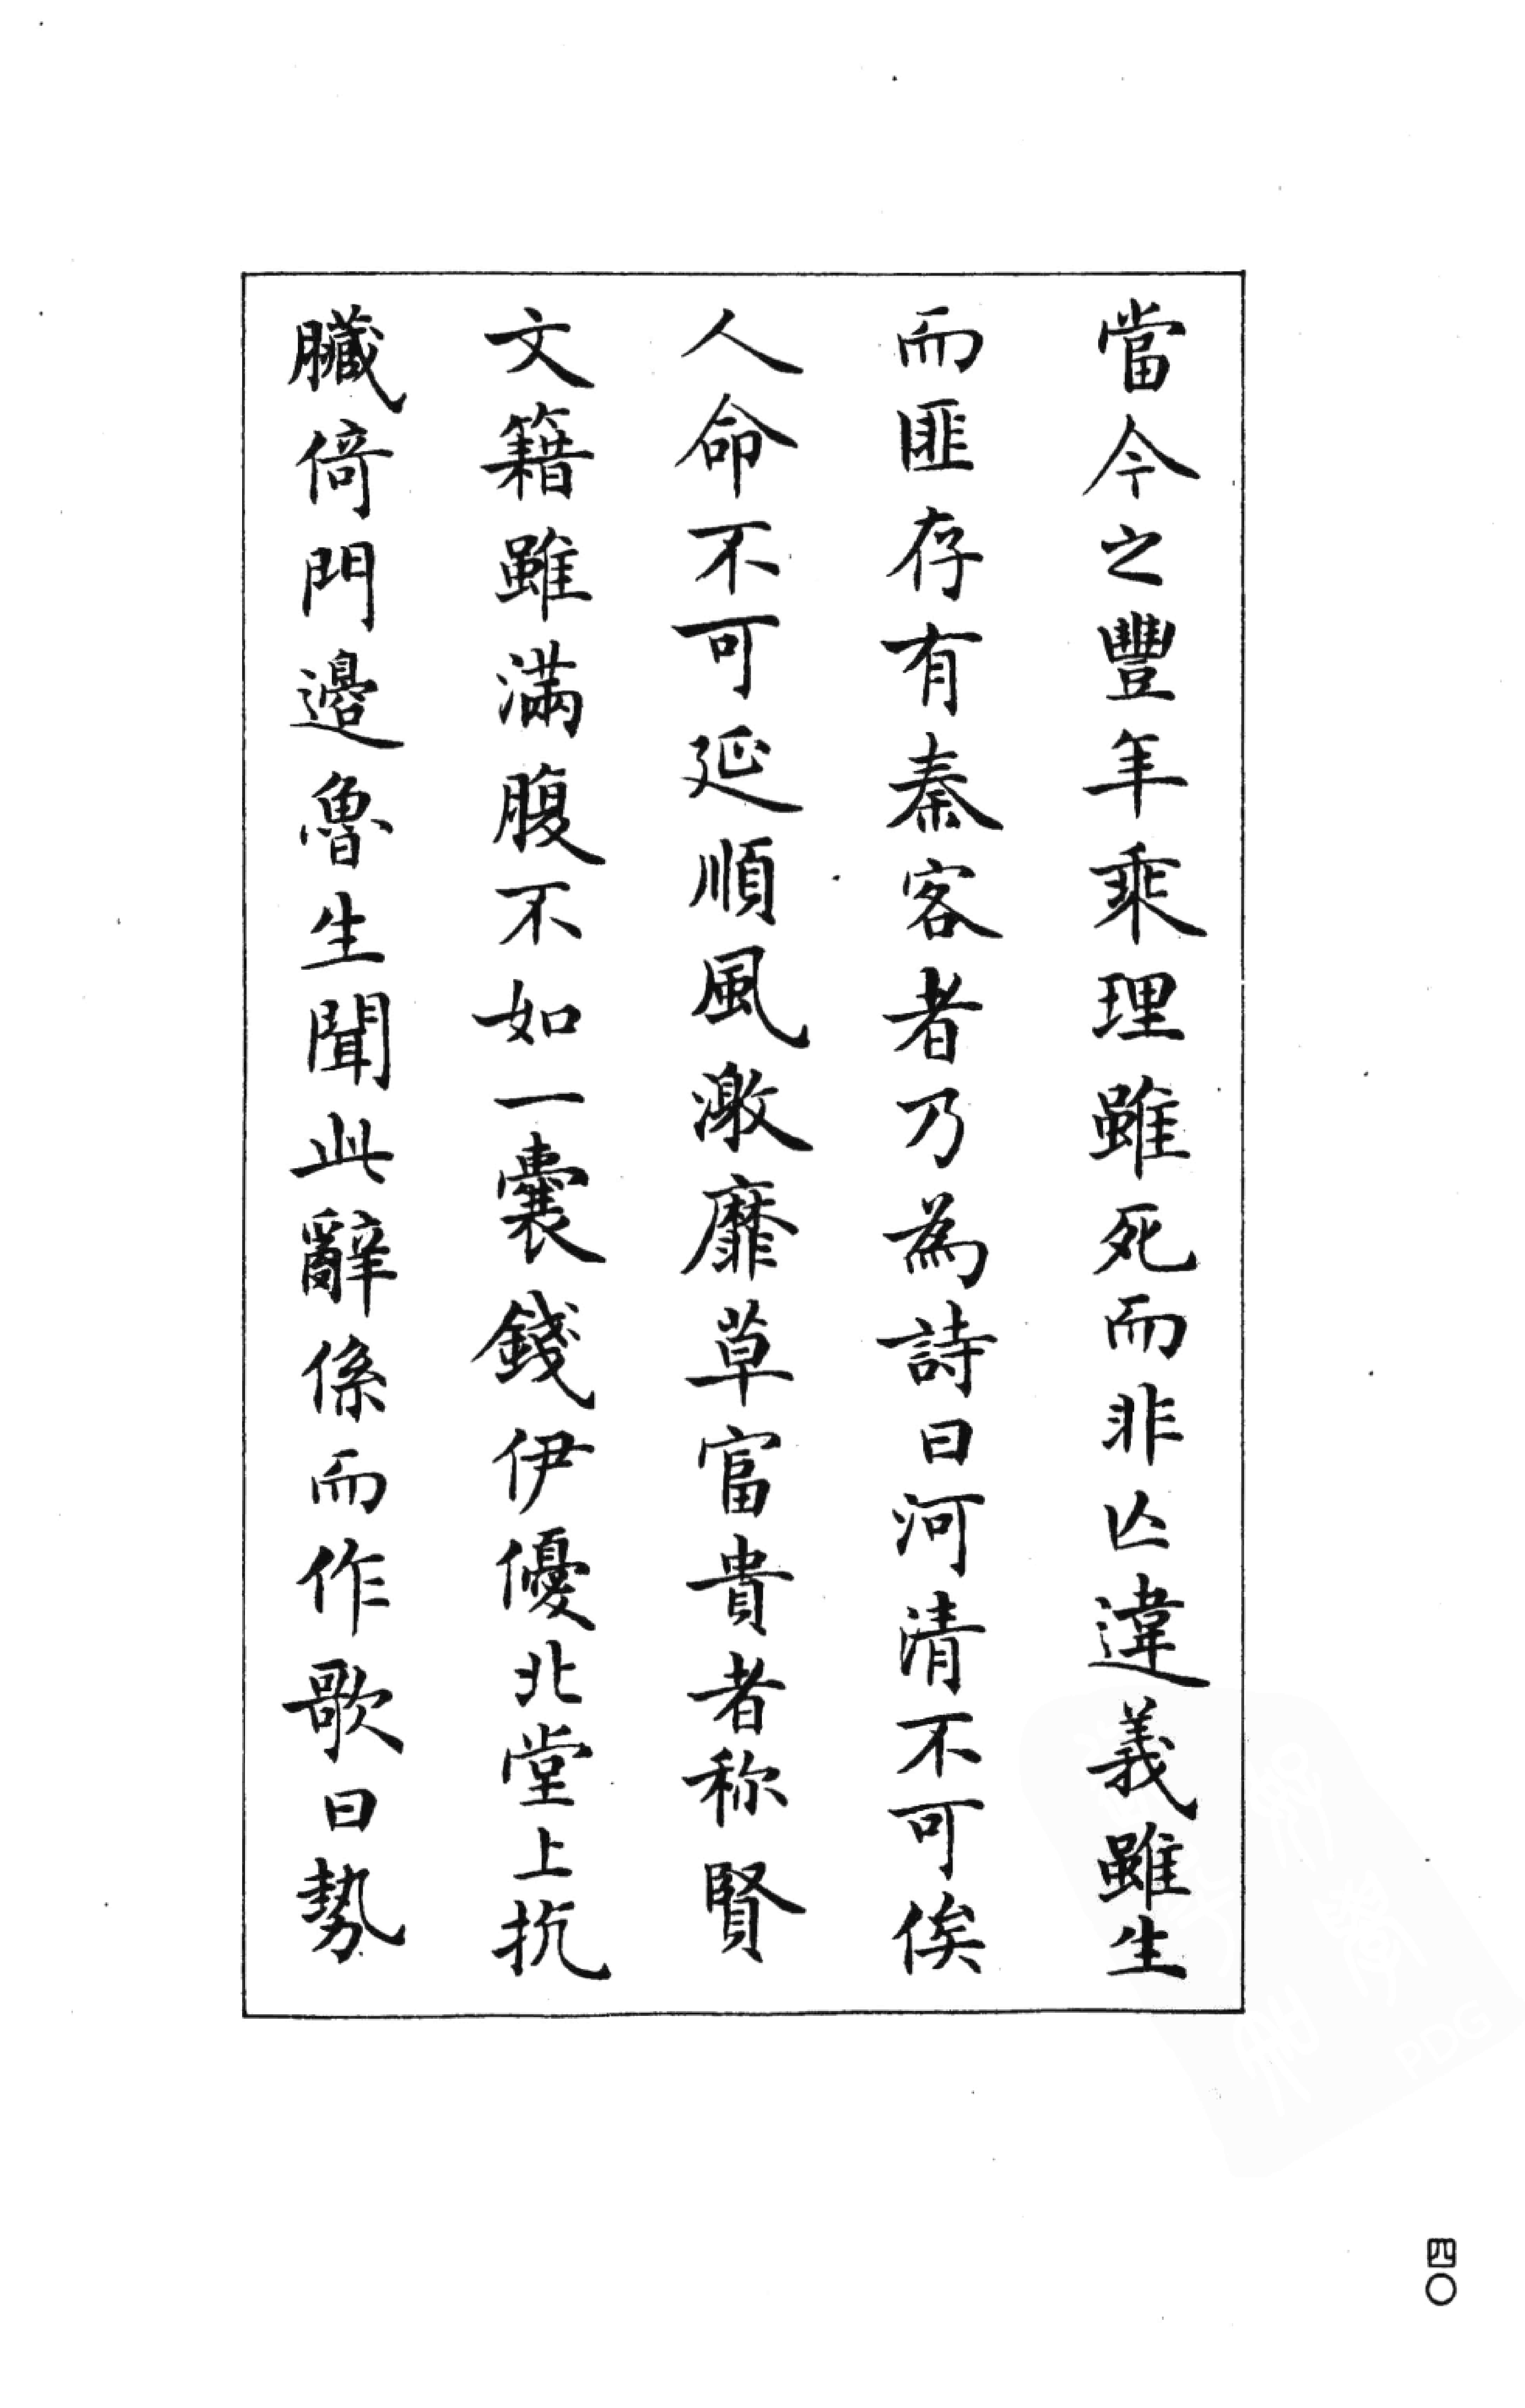 當今之豐年乘理雖死而非亾違義雖生
而匪存有秦客者乃為詩曰河清不可俟
人命不可延順風激靡草富貴者称賢
文籍雖滿腹不如一囊錢伊優北堂上抗
臓倚門邊魯生聞此辭係而作歌曰勢
四〇
PDG